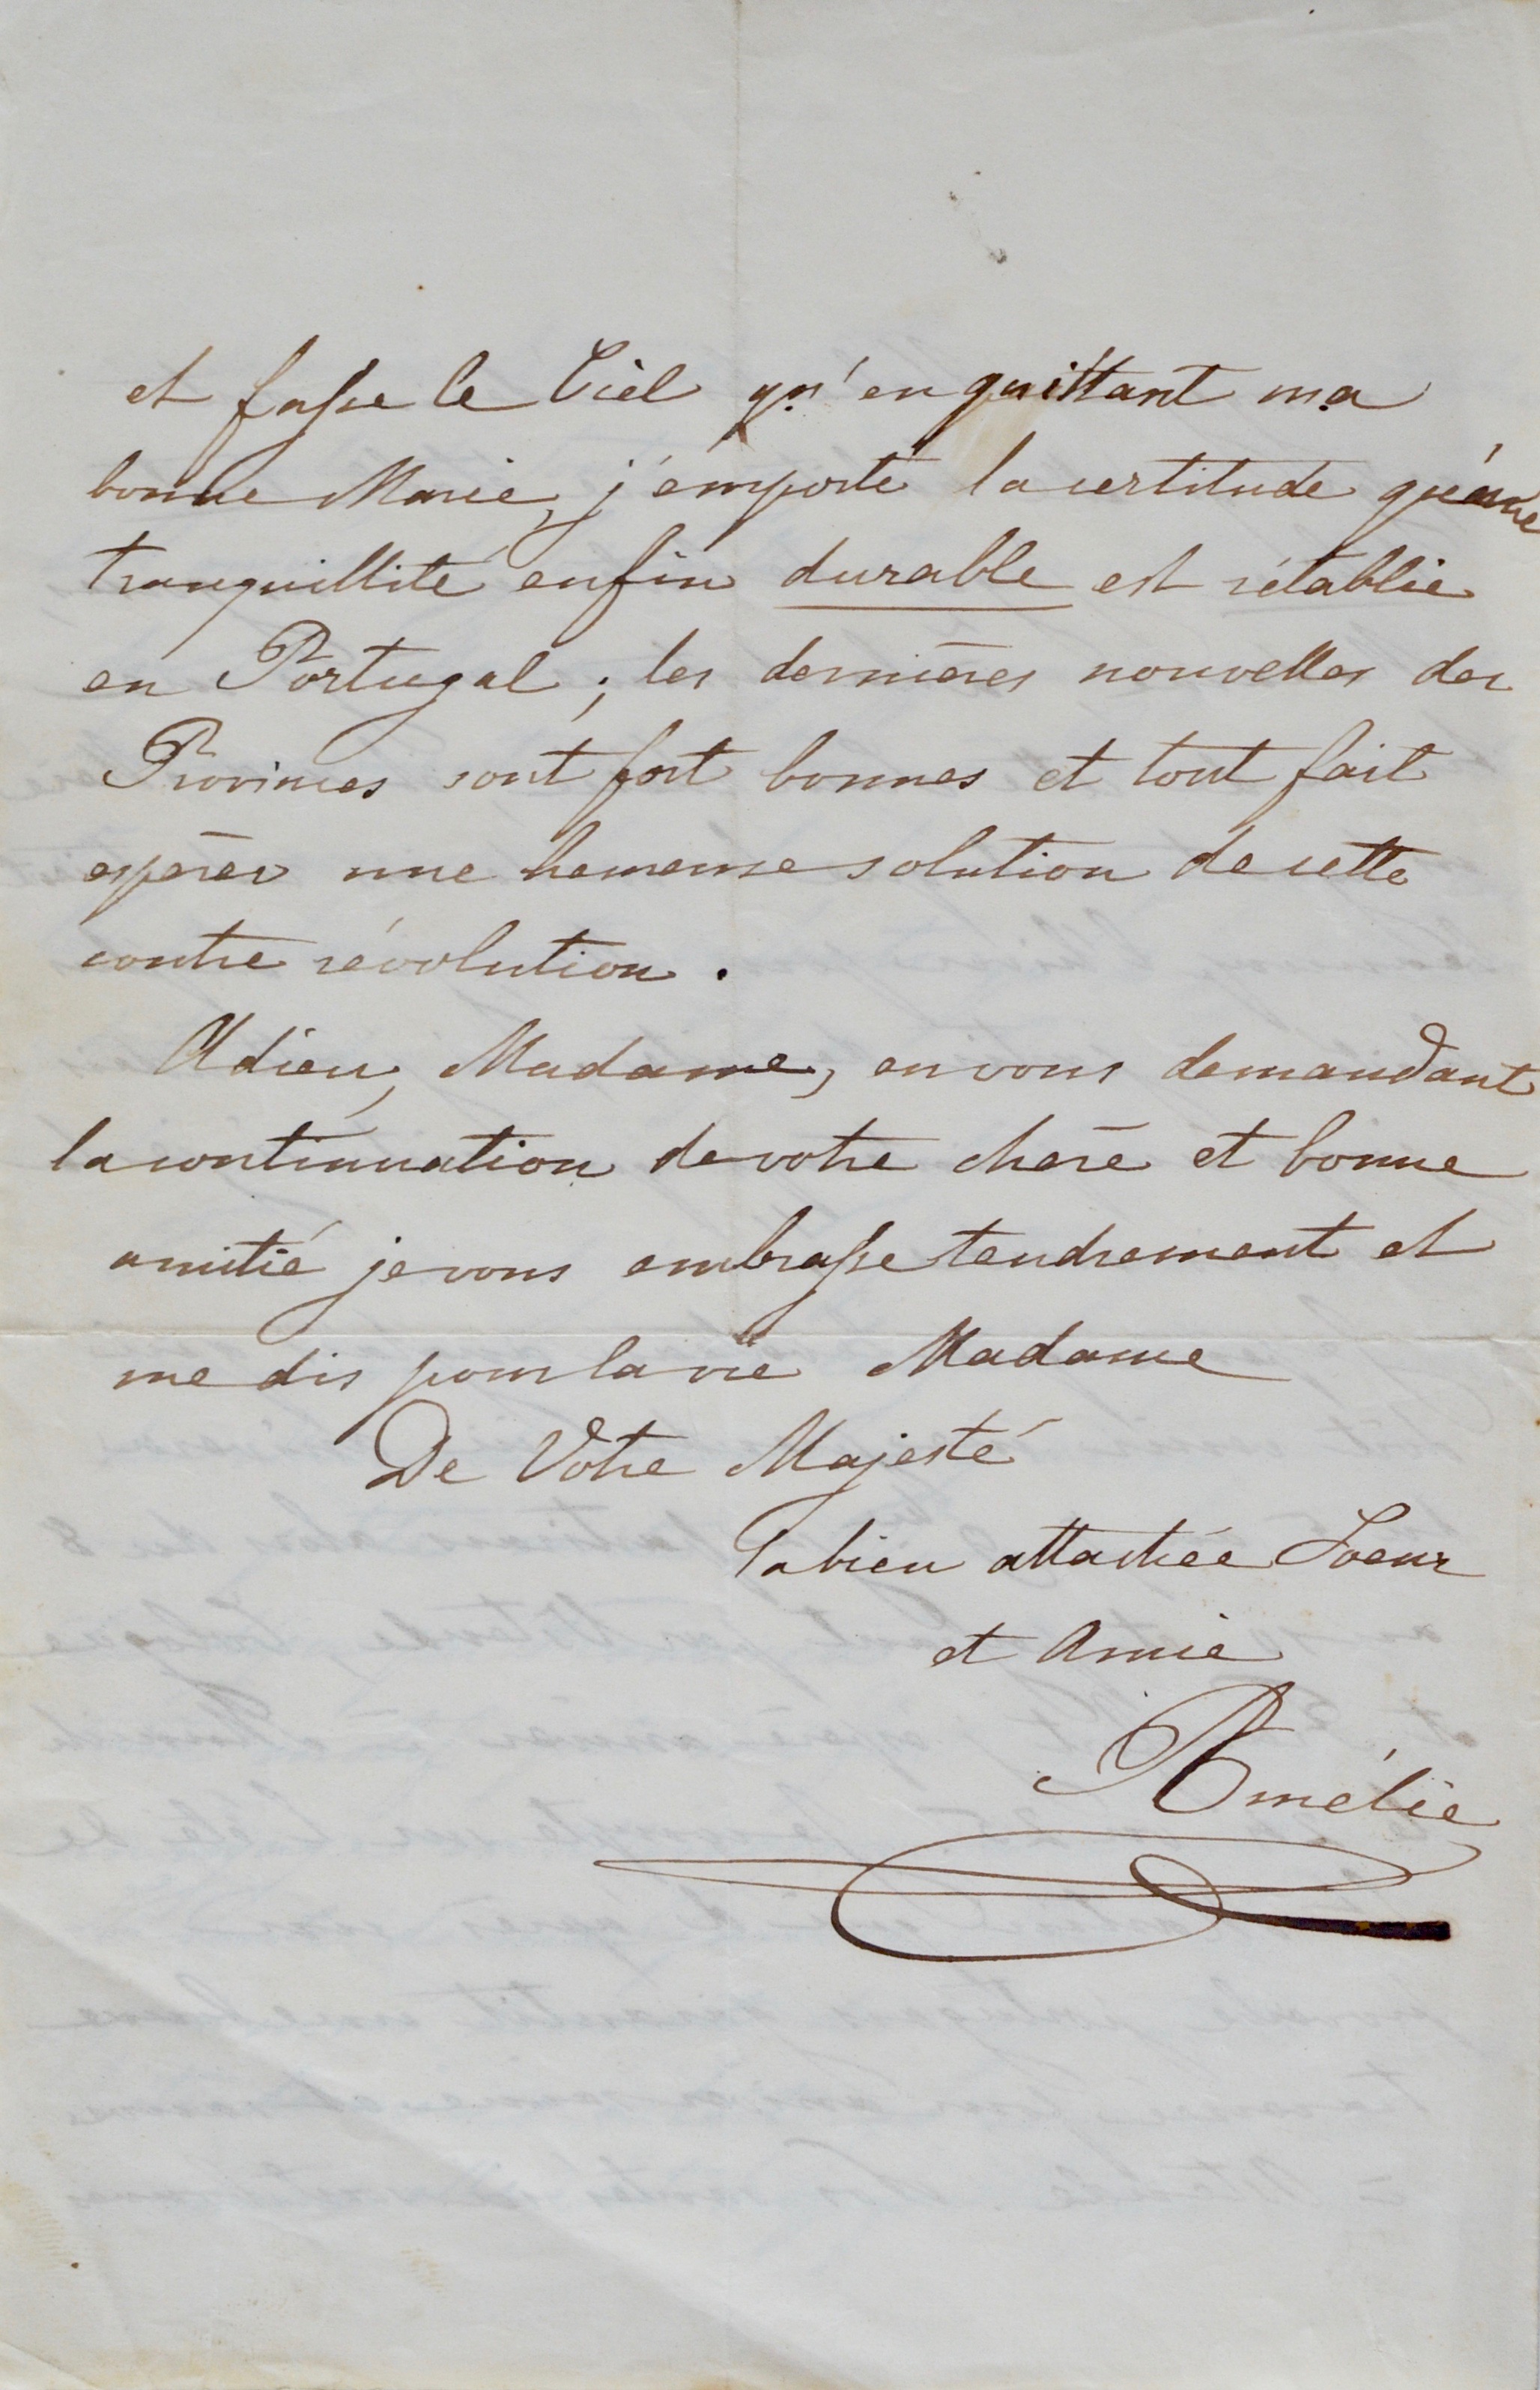 et fasse le Ciel qu'en quittant ma
bonne Marie, j'emporte la certitude qu'une
tranquillité enfin durable est rétablie
en Portugal ; les dernières nouvelles des
Provinces sont fort bonnes et tout fait
espérer une heureuse solution de cette
contre révolution.
Adieu, Madame, en vous demandant
la continuation de votre chère et bonne
amitié je vous embrasse tendrement et
me dis pour la vie Madame
De Votre Majesté
la bien attachée Soeur
et Amie
Amélie